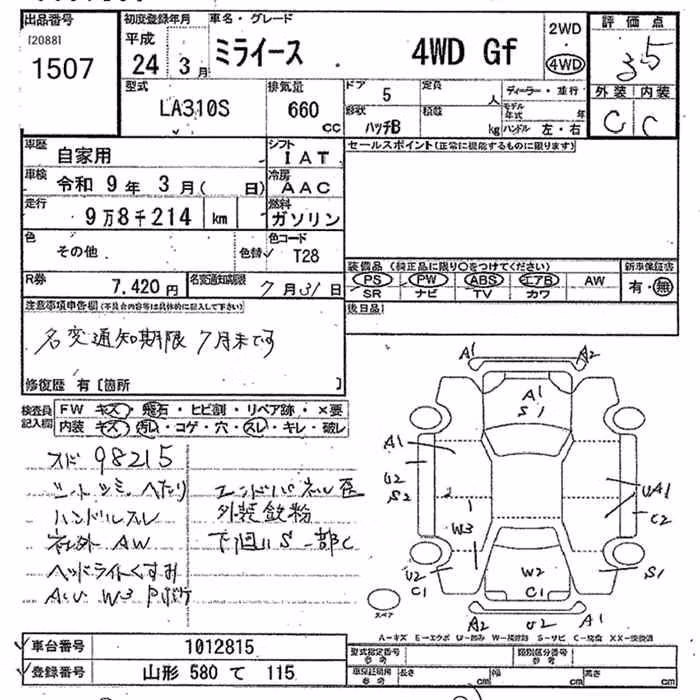 出品番号 初度登録年月 車名・グレード 評価点
[2088] 平成 2WD
1507 24年 3月 ミライース 4WD Gf 4WD 3.5
型式 排気量 ドア 5 定員 人 ディーラー・並行 外装 内装
LA310S 660 cc 形状 ハッチB 積載 kg モデル年式 年 ハンドル 左・右 C C
車歴 自家用 シフト IAT セールスポイント(正常に機能するものに限ります)
車検 令和 9年 3月( 日) 冷房 AAC
走行 9万8千214 km 燃料 ガソリン
色 その他 色替 色コード T28
装備品(純正品に限り○をつけてください) 新車保証書
R券 7,420円 名変通知期限 7月31日 PS PW ABS エアB AW 有・無
SR ナビ TV カワ
注意事項申告欄(不具合内容等は具体的に記入して下さい) 後日品
名変通知期限 7月末です
修復歴 有〔箇所 〕
検査員 FW キズ・飛石・ヒビ割・リペア跡・×要
記入欄 内装 キズ・汚レ・コゲ・穴・スレ・キレ・破レ
98215
シートシミ、ヘたり エンドパネル歪
ハンドルスレ 外装鉄粉
社外AW 下回りS 一部C
ヘッドライトくすみ
W3
A1 A2
A1
S1
A1
U2 UA1
S2 2 1 C2
W3
U2 W2 S1
C1 C1
スペア A2 U2 A1
A－キズ E－エクボ U－凹み W－補修跡 S－サビ C－腐食 XX－交換済
車台番号 1012815 型式指定番号 参考 類別区分番号 参考
登録番号 山形 580 て 115 車庫証明用 参考 長さ cm 幅 cm 高さ cm